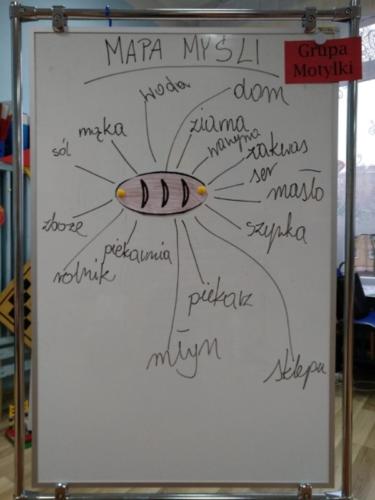 MAPA MYŚLI
Grupa
Motylki
woda
dom
mąka
ziarna
warzywa
sól
zakwas
ser
masło
zboże
szynka
piekarnia
rolnik
piekarz
młyn
sklepu